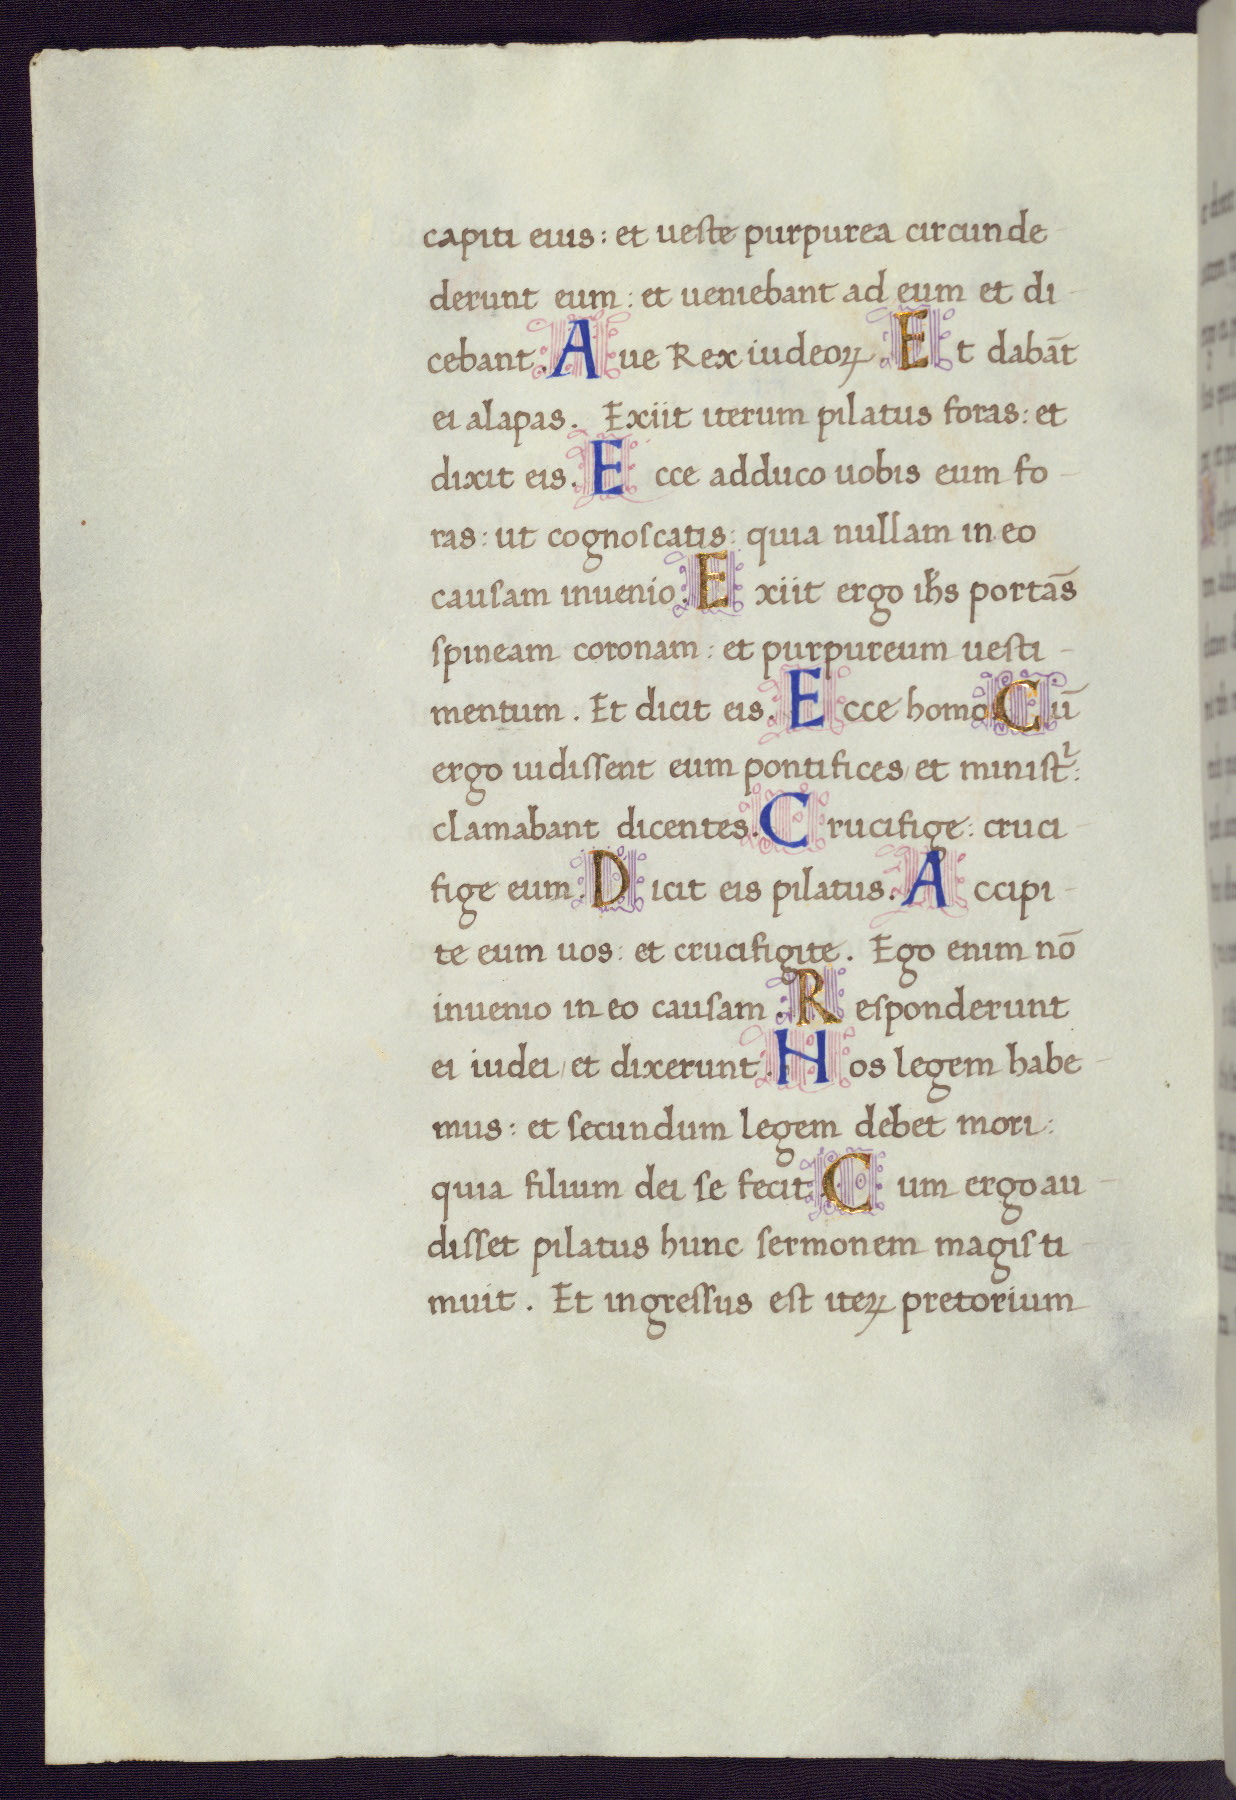 capiti eius: et ueste purpurea circunde
derunt eum: et ueniebant ad eum et di-
cebant. Aue Rex iudeoꝝ. Et dabāt
ei alapas. Exiit iterum pilatus foras: et
dixit eis. Ecce adduco uobis eum fo-
ras: ut cognoſcatis: quia nullam in eo
cauſam inuenio. Exiit ergo ihs portās
ſpineam coronam: et purpureum ueſti-
mentum. Et dicit eis. Ecce homo Cū
ergo uidiſſent eum pontifices, et miniſtr:
clamabant dicentes. Crucifige: cruci-
fige eum. Dicit eis pilatus. Accipi-
te eum uos: et crucifigite. Ego enim nō
inuenio in eo cauſam. Responderunt
ei iudei, et dixerunt. Hos legem habe-
mus: et ſecundum legem debet mori:
quia filium dei ſe fecit. Cum ergo au-
diſſet pilatus hunc ſermonem magiſ ti-
muit. Et ingreſſus eſt iteꝝ pretorium